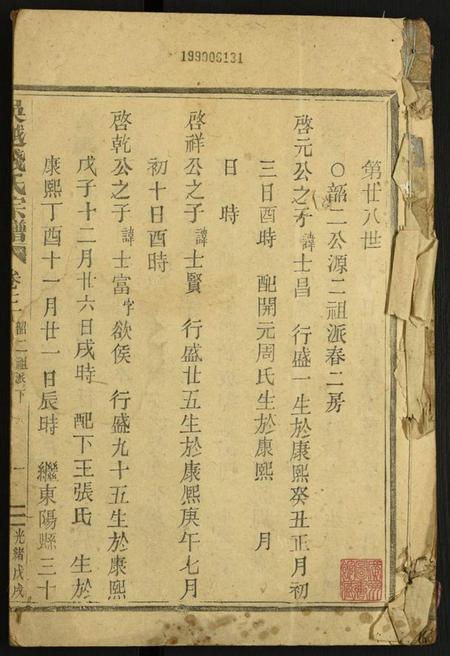 199006131
第廿八世
○韶二公源二祖派春二房
啓元公之子諱士昌 行盛一生於康熙癸丑正月初
三日酉時 配開元周氏生於康熙 月
日 時
啓祥公之子諱士賢 行盛廿五生於康熙庚午七月
初十日酉時
啓乾公之子諱士富字欲侯 行盛九十五生於康熙
戊子十二月廿六日戌時 配下王張氏 生於
康熙丁酉十一月廿一日辰時 繼東陽縣三十
吳越錢氏宗譜 卷三 韶二祖派下 一 光緒戊戌